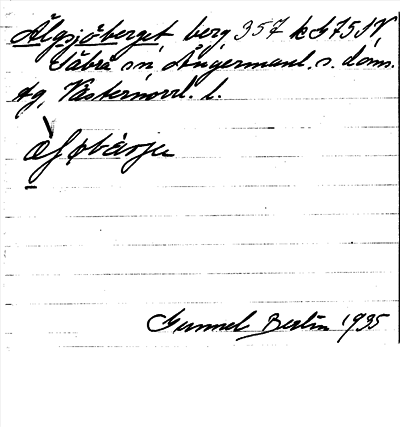 Älgsjöberget berg 357 k G 751 V
Säbrå sn, Ångermanl. s. doms.
tg, Västernorrl. l.
Gunnel Berlin 1935